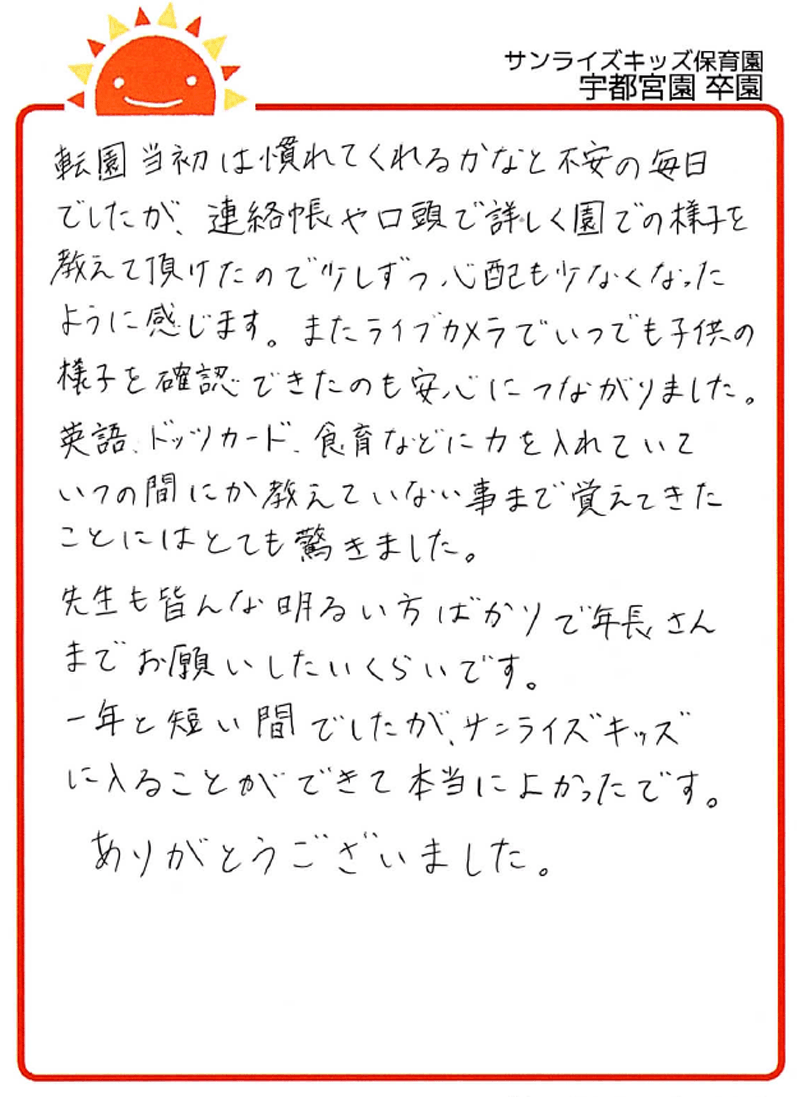 サンライズキッズ保育園
宇都宮園 卒園
転園当初は慣れてくれるかなと不安の毎日
でしたが、連絡帳や口頭で詳しく園での様子を
教えて頂けたので少しずつ心配も少なくなった
ように感じます。またライブカメラでいつでも子供の
様子を確認できたのも安心につながりました。
英語、ドッツカード、食育などに力を入れていて
いつの間にか教えていない事まで覚えてきた
ことにはとても驚きました。
先生も皆んな明るい方ばかりで年長さん
までお願いしたいくらいです。
一年と短い間でしたが、サンライズキッズ
に入ることができて本当によかったです。
ありがとうございました。